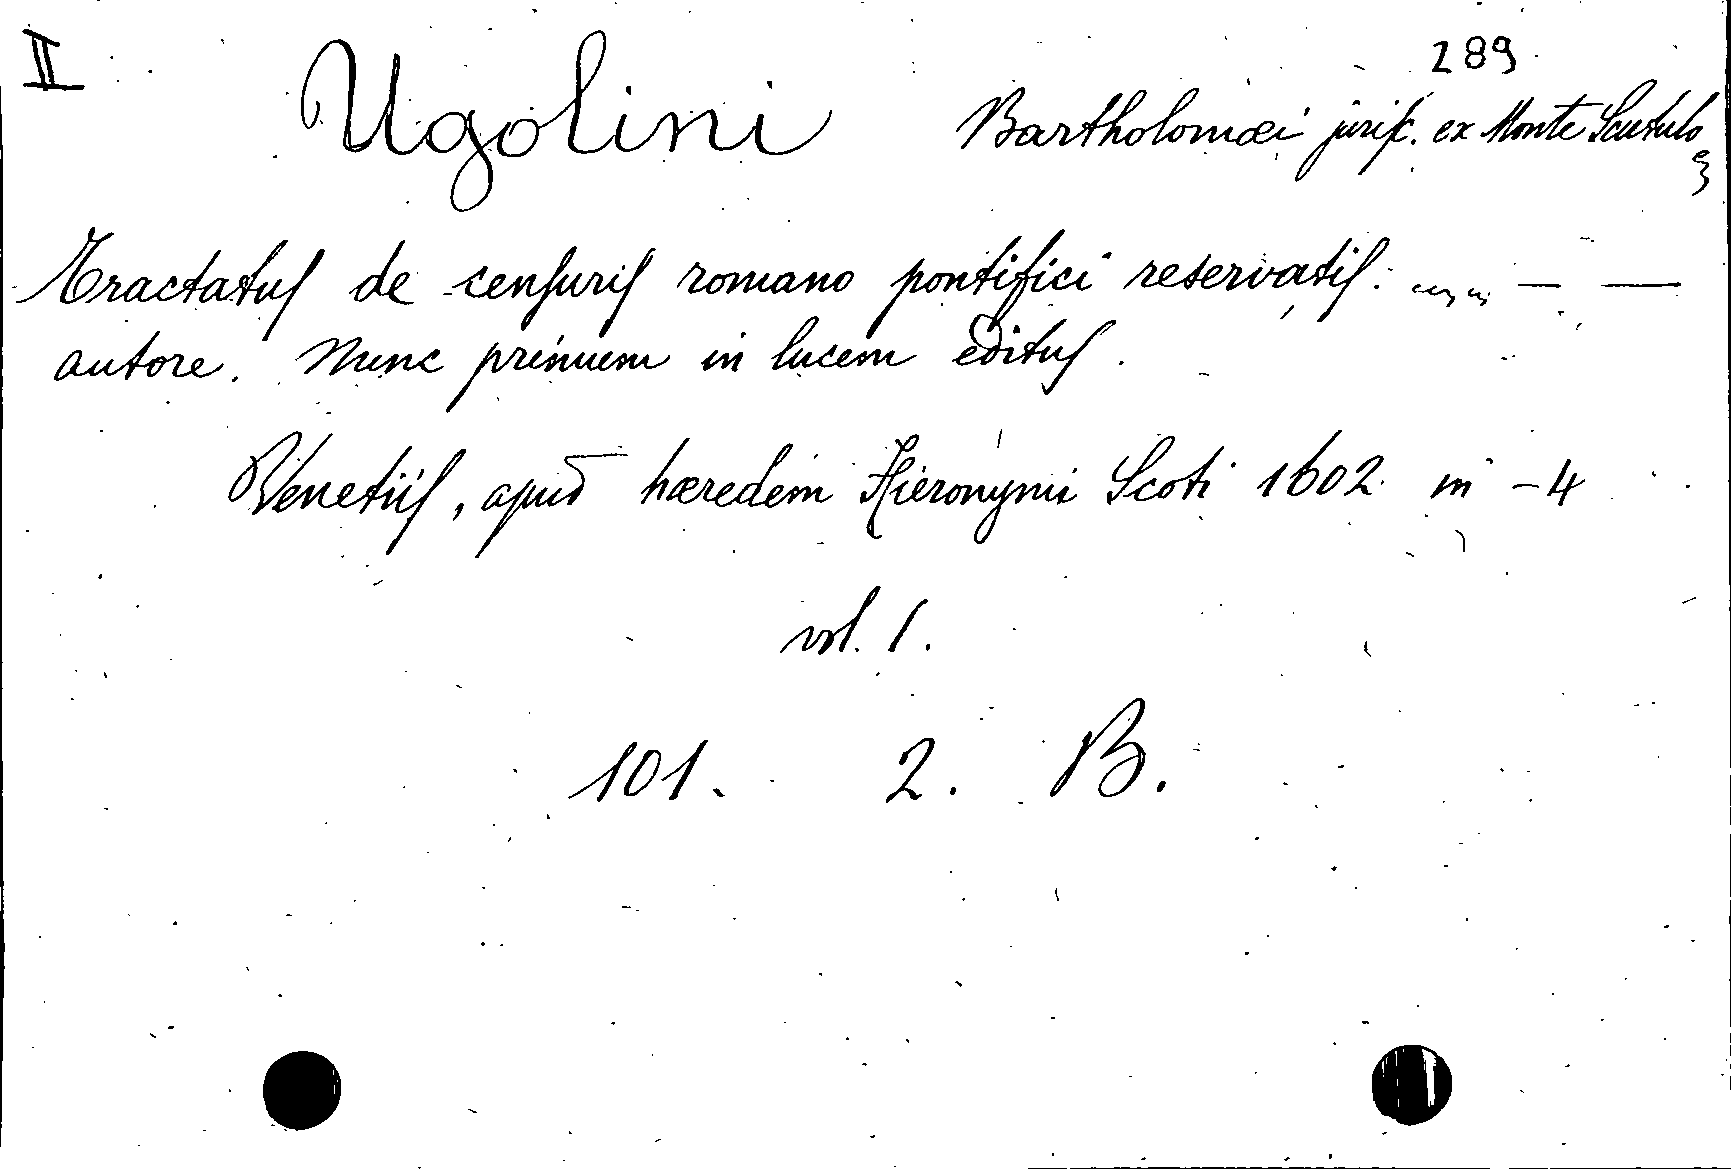 II
289
Ugolini Bartholomæi jurisc. ex Monte Scutulo
Tractatus de censuris romano pontifici reservatis: — —
autore. Nunc primum in lucem editus.
Venetiis, apud hæredem Hieronymi Scoti 1602 in -4
vol. 1.
101. 2. B.